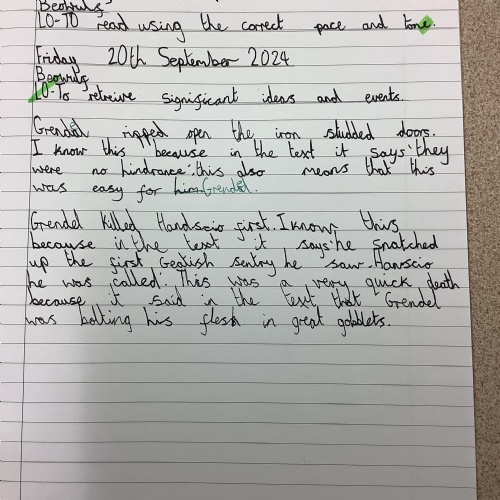 Beowulf
LO-TO read using the correct pace and tone.
Friday 20th September 2024
Beowulf
LO-To retreive significant ideas and events.
Grendel ripped open the iron studded doors.
I know this because in the text it says 'they
were no hindrance'. this also means that this
was easy for him Grendel.
Grendel killed Handscio first. I know this
because in the text it says 'he snatched
up the first Geatish sentry he saw. Hanscio
he was called'. This was a very quick death
because it said in the text that Grendel
was bolting his flesh in great gobblets.